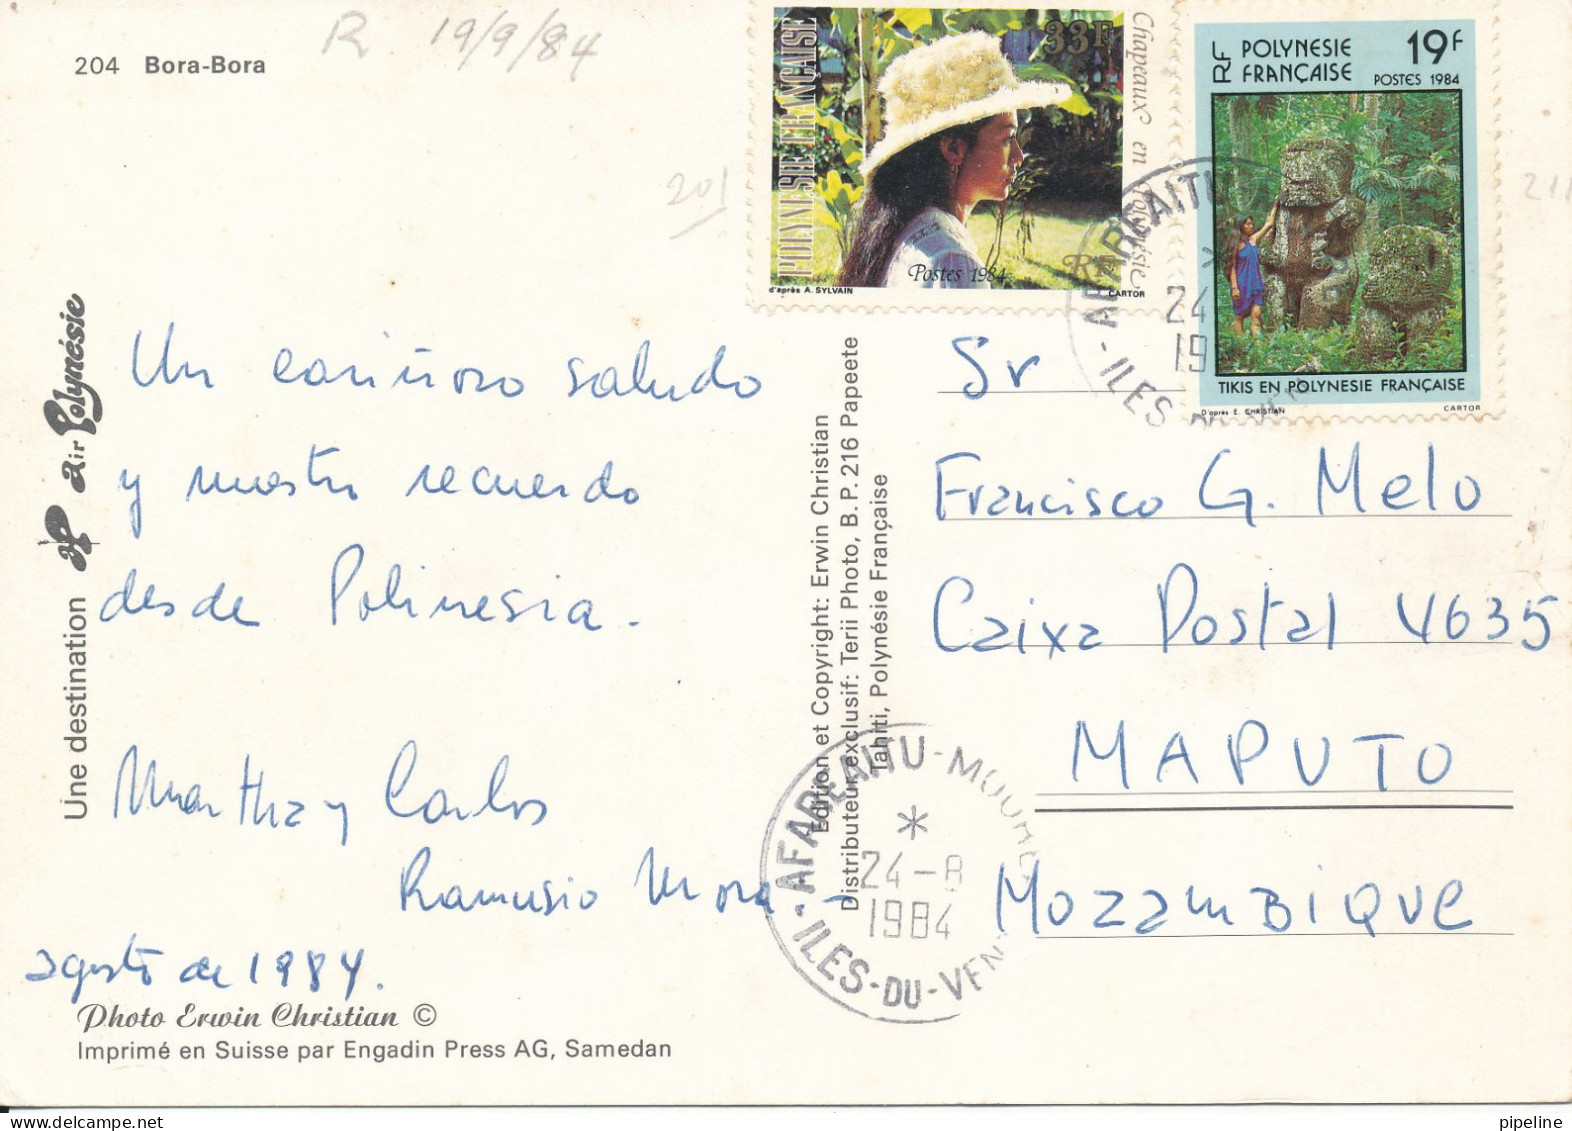 R 19/9/84
204 Bora-Bora
201
211
POLYNESIE FRANÇAISE
33F
Chapeaux en Polynésie
Postes 1984
RF
d'après A. SYLVAIN
CARTOR
RF POLYNESIE FRANÇAISE
19F
POSTES 1984
TIKIS EN POLYNESIE FRANÇAISE
D'après E. CHRISTIAN
CARTOR
AFAREAITU
*
24
19
- ILES -
Un cariñoso saludo
y nuestro recuerdo
desde Polinesia.
Martha y Carlos
Ramusio Mora -
agosto de 1984.
Une destination air Polynésie
Photo Erwin Christian ©
Imprimé en Suisse par Engadin Press AG, Samedan
Edition et Copyright: Erwin Christian
Distributeur exclusif: Terii Photo, B.P. 216 Papeete
Tahiti, Polynésie Française
Sr
Francisco G. Melo
Caixa Postal 4635
MAPUTO
Mozambique
AFAREAITU-MOOREA
*
24-8
1984
- ILES-DU-VENT
pipeline